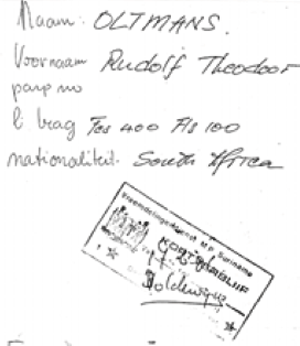 Naam: OLTMANS.
Voornaam Rudolf Theodoor
pasp no
bedrag Fcs 400 Fls 100
nationaliteit. South Africa
Vreemdelingendienst M.P. Suriname
KORT VERBLIJF